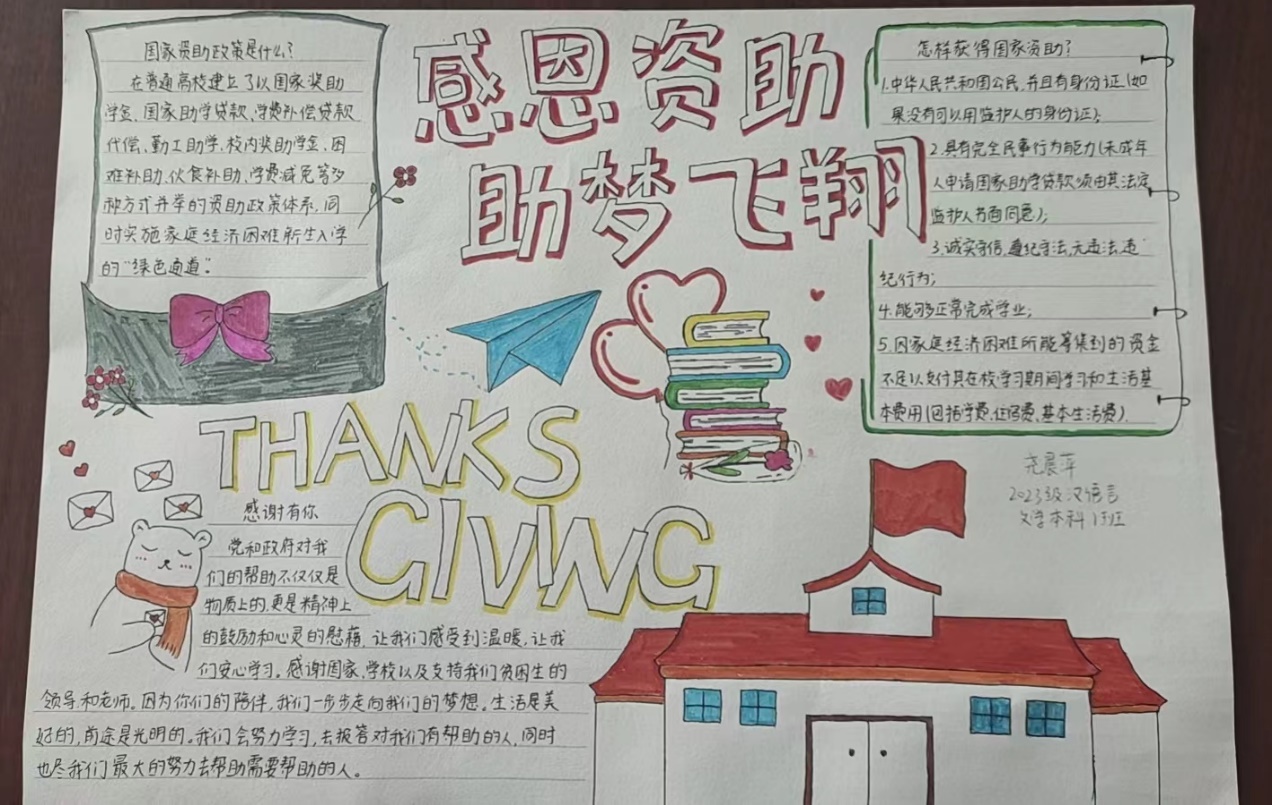 感恩资助
助梦飞翔
国家资助政策是什么？
在普通高校建立了以国家奖助
学金、国家助学贷款、学费补偿贷款
代偿、勤工助学、校内奖助学金、困
难补助、伙食补助、学费减免等多
种方式并举的资助政策体系，同
时实施家庭经济困难新生入学
的“绿色通道”.
怎样获得国家资助？
1.中华人民共和国公民,并且有身份证(如
果没有可以用监护人的身份证);
2.具有完全民事行为能力(未成年
人申请国家助学贷款须由其法定
监护人书面同意);
3.诚实守信,遵纪守法,无违法违
纪行为;
4.能够正常完成学业;
5.因家庭经济困难所能筹集到的资金
不足以支付其在校学习期间学习和生活基
本费用(包括学费,住宿费,基本生活费).
THANKS
GIVING
感谢有你
党和政府对我
们的帮助不仅仅是
物质上的,更是精神上
的鼓励和心灵的慰藉,让我们感受到温暖,让我
们安心学习。感谢国家,学校以及支持我们贫困生的
领导和老师。因为你们的陪伴,我们一步步走向我们的梦想。生活是美
好的,前途是光明的。我们会努力学习,去报答对我们有帮助的人,同时
也尽我们最大的努力去帮助需要帮助的人。
尧晨萍
2023级汉语言
文学本科1班